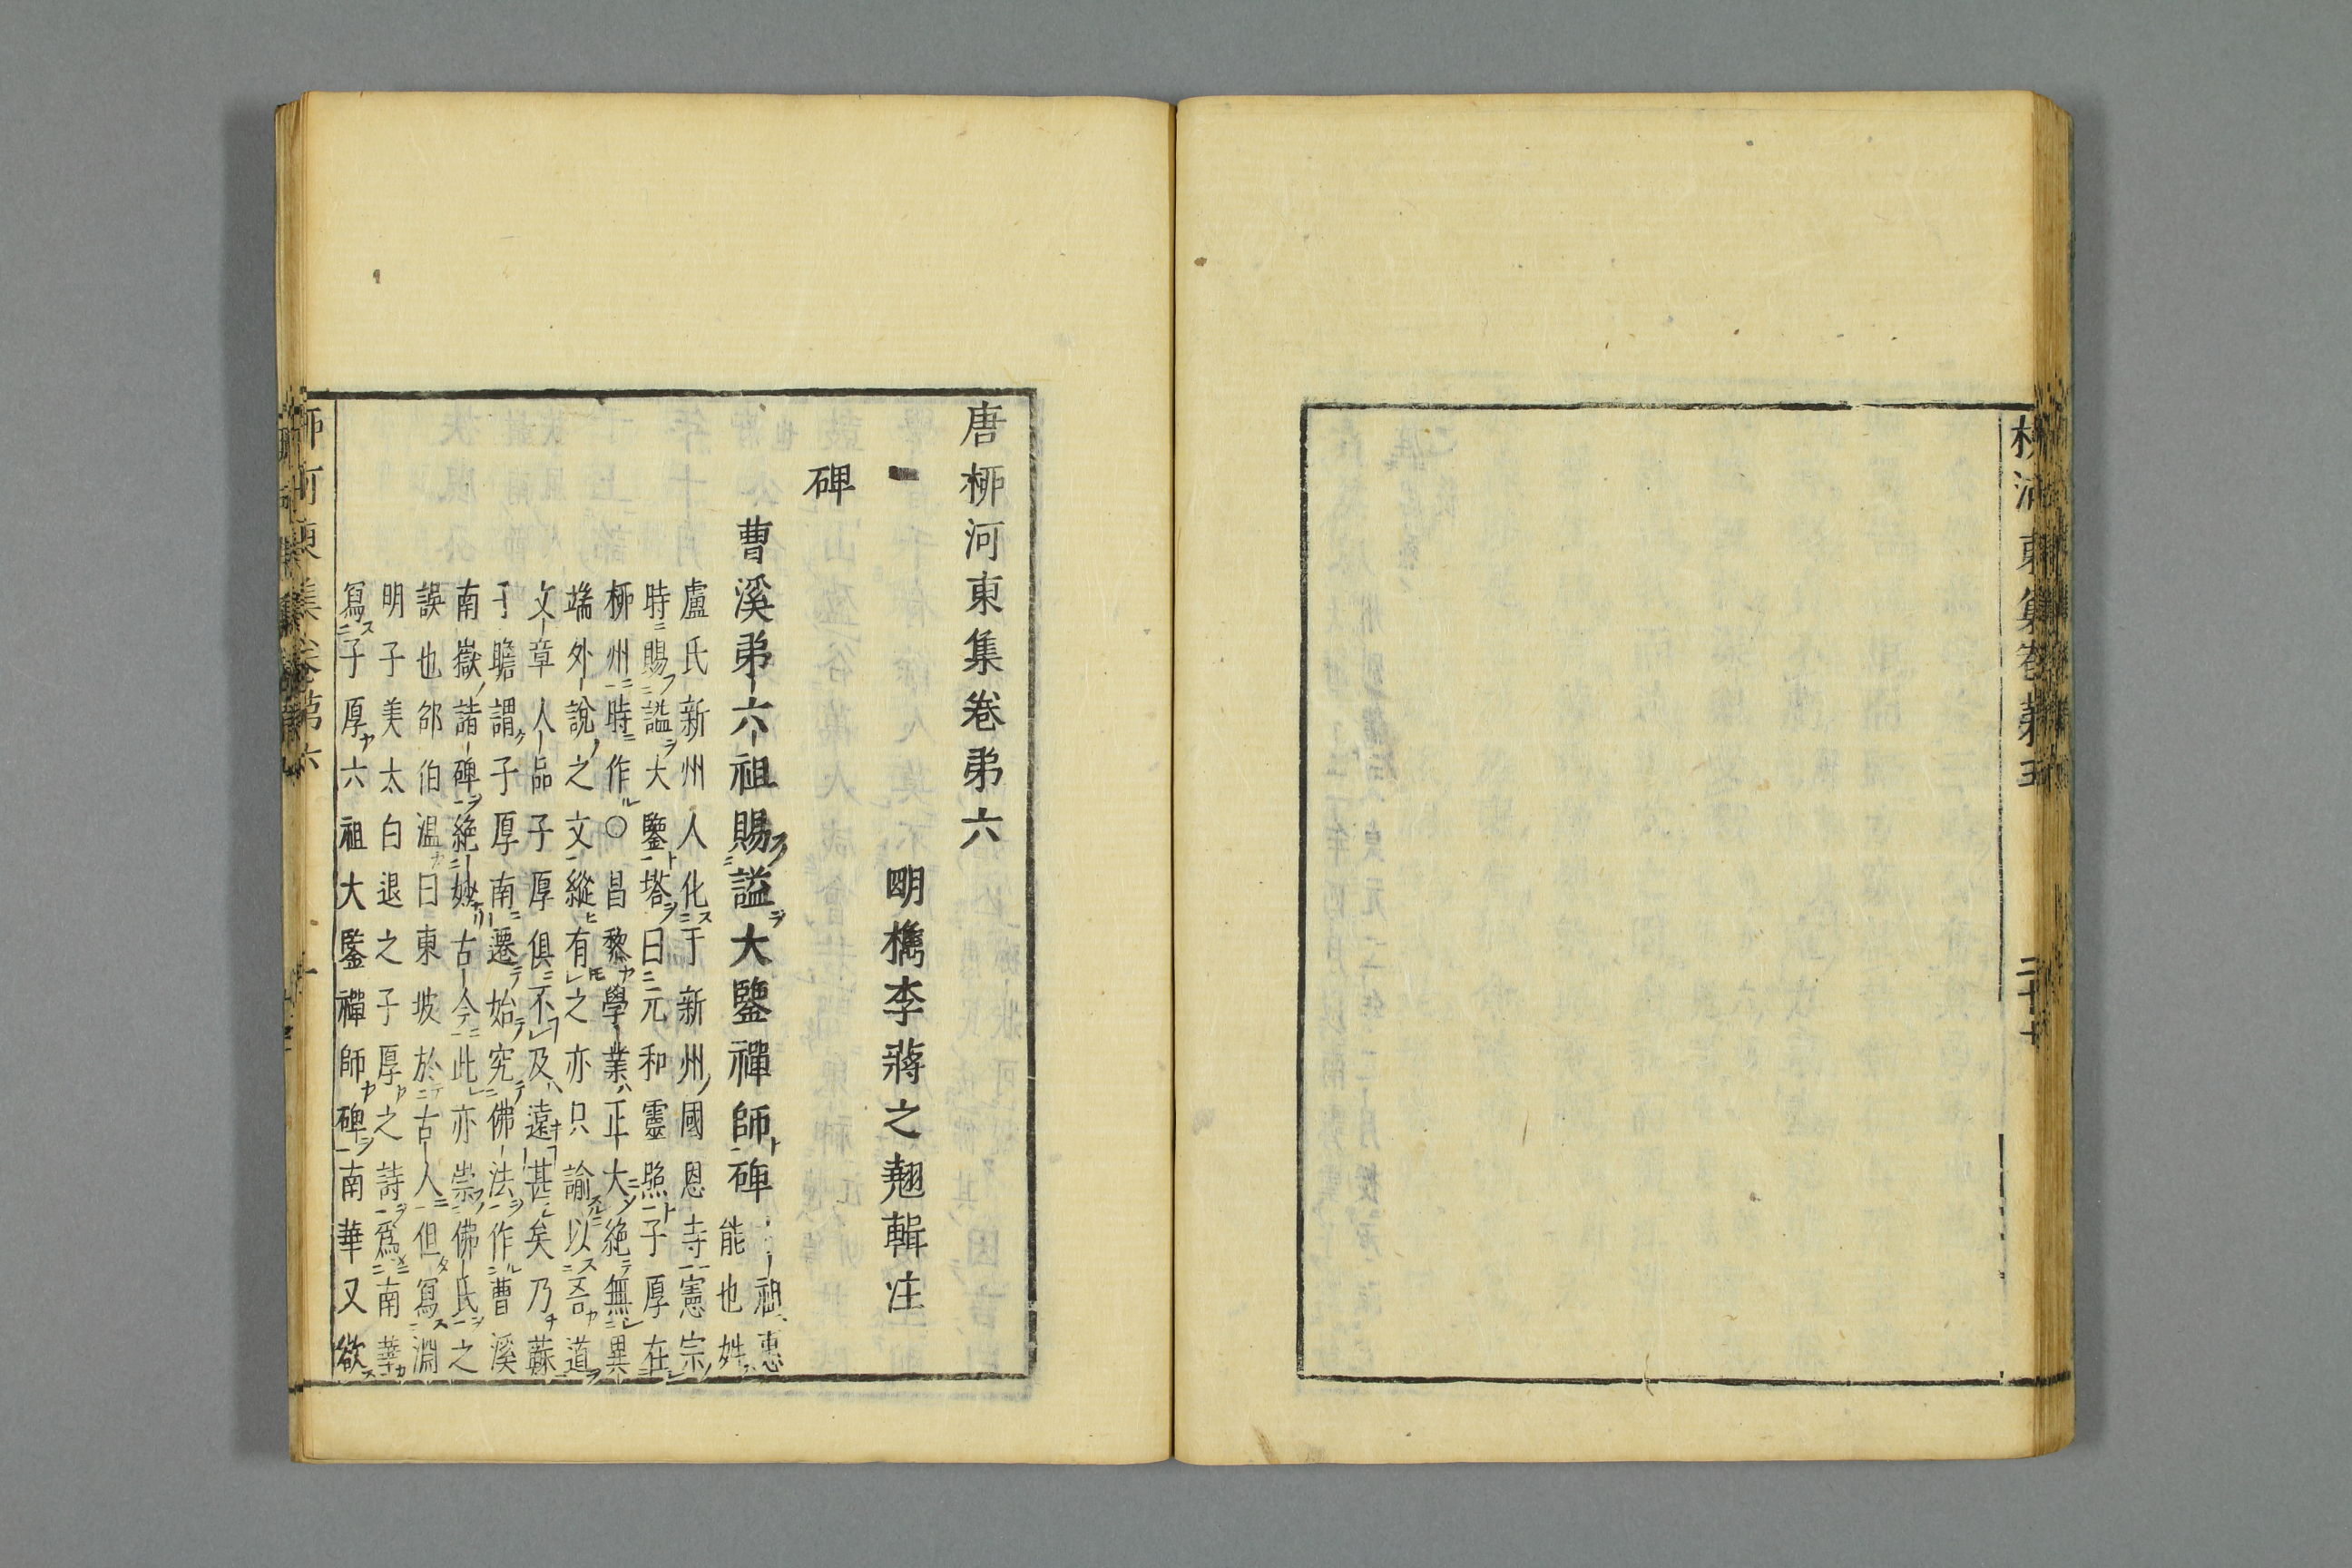 東集卷第五
二十七
唐柳河東集卷第六
明檇李蔣之翹輯注
碑
曹溪第六祖賜謚大鑒禪師碑
祖惠
能也姓
盧氏新州人化于新州國恩寺憲宗
時賜謚大鑒塔曰元和靈照子厚在
柳州時作○昌黎學業正大絕無異
端外說之文縱有之亦只諭以吾道
文章人品子厚俱不及遠甚矣乃蘇
子瞻謂子厚南遷始究佛法作曹溪
南嶽諸碑絕妙古今此亦崇佛氏之
誤也邵伯溫曰東坡於古人但寫淵
明子美太白退之子厚之詩爲南華
寫子厚六祖大鑒禪師碑南華又欲
柳河東集卷第六